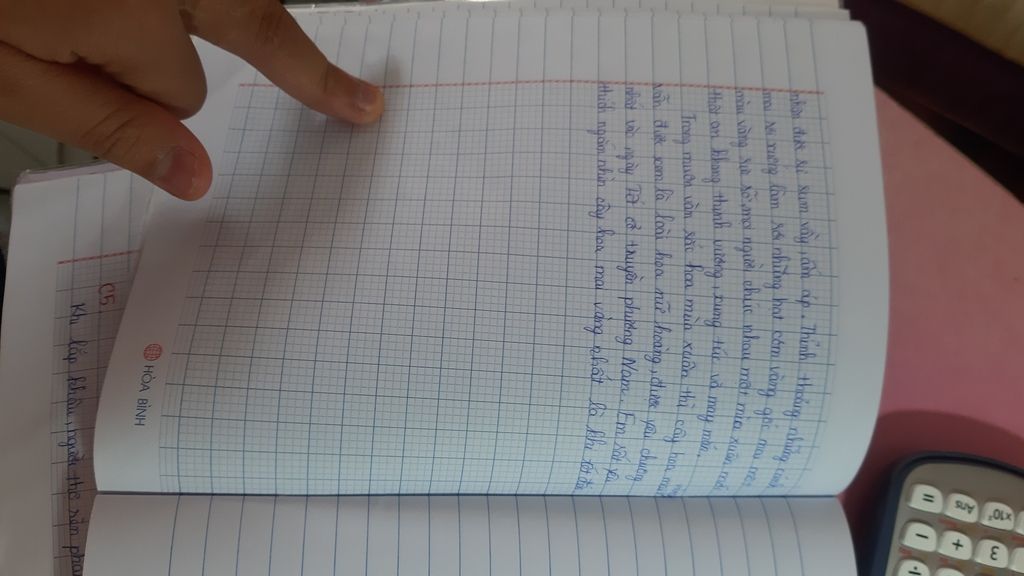 nhận được sự sum vầy, ấm áp. Thỉnh thoảng những cánh
mai rơi xuống làm sà những hạt cốm vàng gói mai trên
màu vàng sà số mọi người chúc nhau một mùa xuân mới
thật an khang thịnh vượng, sung túc và may mắn.
Trong muôn vàn sắc hoa mùa xuân thì cây hoa mai
vẫn được xem là loài hoa nữ hoàng, được yêu chung
nhất và ngày Tết cổ truyền phương Nam. Em rất yêu
thích ngắm nhìn cây hoa mai vàng nhất là khi tết đến
HÒA BÌNH
C5
Khi lắp khẩu, người thợ
x10ˣ
Ans
=
3
+
−